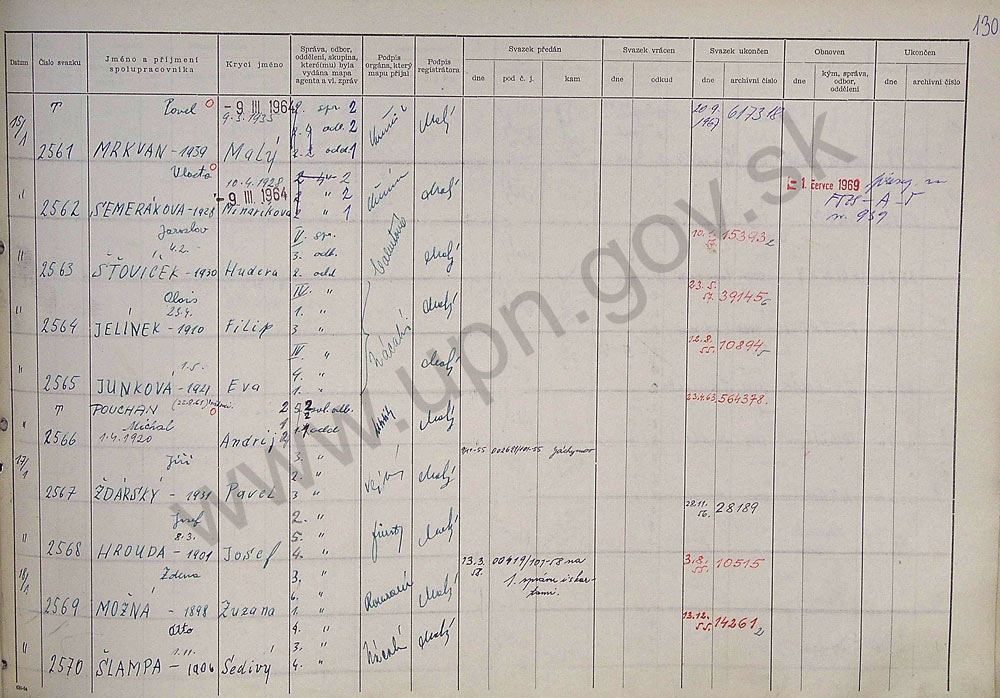 130
Datum Číslo svazku Jméno a příjmení spolupracovníka Krycí jméno Správa, odbor, oddělení, skupina, které(mu) byla vydána mapa agenta a vl. zpráv Podpis orgána, který mapu přijal Podpis registrátora Svazek předán Svazek vrácen Svazek ukončen Obnoven Ukončen
dne pod č. j. kam dne odkud dne archivní číslo dne kým, správa, odbor, oddělení dne archivní číslo
Pavel - 9. III. 1964 2. spr. 2 20.9. 617318
15/1 9.3.1933 odd. 2 Malý 1967
2561 MRKVAN - 1939 Malý 2. odd 1
Vlasta 10.4.1928 2 - 1. července 1969
" - 9. III. 1964 " 2
2562 SEMERÁKOVA - 1928 Minaríkova " 1
Jaroslav IV. spr. 10. 15393
" 4.2. 3. odb. Malý
2563 ŠŤOVÍČEK - 1930 Hudera 2. odd
Alois IV. " 23.5. 39145
" 25.4. 1. " Malý 57.
2564 JELÍNEK - 1910 Filip 3 "
IV " 12.8. 10894
" 1.5. 4. " Malý 55.
2565 JUNKOVÁ - 1921 Eva 1. "
POUCHAN 2 odb. 23.4.63 564378.
" Michal Malý
2566 1.4.1920 Andrij 2
17/1 Jiří 3. " Jáchymov
2. " Malý
2567 ŽĎÁRSKÝ - 1931 Pavel 3 "
Josef 2. " 28.11. 28189
" 8.3. 5. " Malý 56.
2568 HROUDA - 1901 Josef 4. "
18/1 Zdena 3. " 13.3. 00419/101-58 na 3.8. 10515
6. " Malý 58. 1. správu i skar- 55.
2569 MOŽNÁ - 1898 Zuzana 1. " tami.
Otto 4. " 13.12. 14261 2
" 1.11. 3. " Malý 55.
2570 ŠLAMPA - 1906 Šedivý 4. "
www.upn.gov.sk